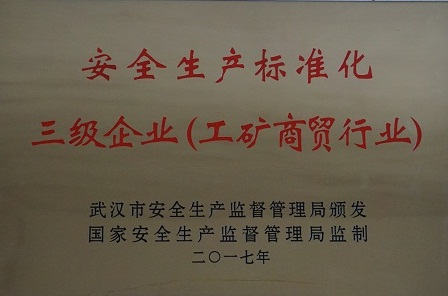 安全生产标准化
三级企业(工矿商贸行业)
武汉市安全生产监督管理局颁发
国家安全生产监督管理局监制
二〇一七年